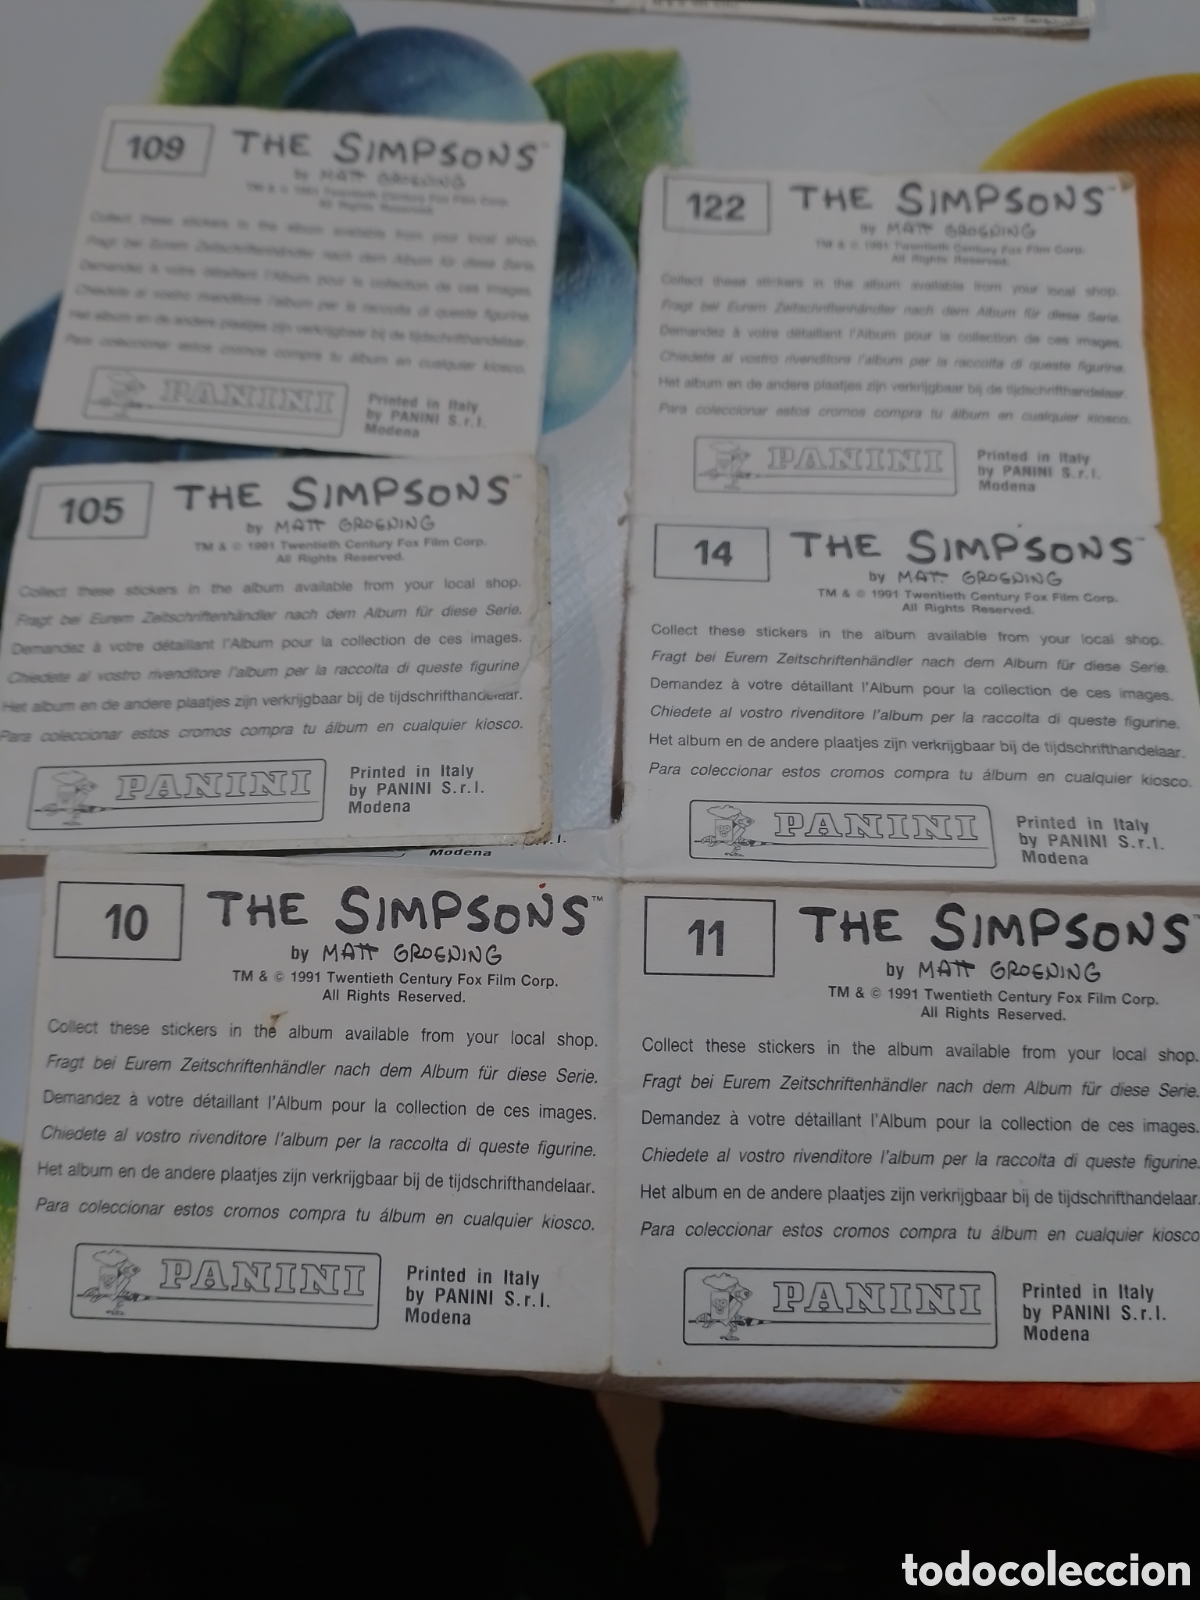 109
THE SIMPSONS
by MATT GROENING
TM & © 1991 Twentieth Century Fox Film Corp.
All Rights Reserved.
Collect these stickers in the album available from your local shop.
Fragt bei Eurem Zeitschriftenhändler nach dem Album für diese Serie.
Demandez à votre détaillant l'Album pour la collection de ces images.
Chiedete al vostro rivenditore l'album per la raccolta di queste figurine.
Het album en de andere plaatjes zijn verkrijgbaar bij de tijdschrifthandelaar.
Para coleccionar estos cromos compra tu álbum en cualquier kiosco.
PANINI
Printed in Italy
by PANINI S.r.l.
Modena
122
THE SIMPSONS™
by MATT GROENING
TM & © 1991 Twentieth Century Fox Film Corp.
All Rights Reserved.
Collect these stickers in the album available from your local shop.
Fragt bei Eurem Zeitschriftenhändler nach dem Album für diese Serie.
Demandez à votre détaillant l'Album pour la collection de ces images.
Chiedete al vostro rivenditore l'album per la raccolta di queste figurine.
Het album en de andere plaatjes zijn verkrijgbaar bij de tijdschrifthandelaar.
Para coleccionar estos cromos compra tu álbum en cualquier kiosco.
PANINI
Printed in Italy
by PANINI S.r.l.
Modena
105
THE SIMPSONS™
by MATT GROENING
TM & © 1991 Twentieth Century Fox Film Corp.
All Rights Reserved.
Collect these stickers in the album available from your local shop.
Fragt bei Eurem Zeitschriftenhändler nach dem Album für diese Serie.
Demandez à votre détaillant l'Album pour la collection de ces images.
Chiedete al vostro rivenditore l'album per la raccolta di queste figurine
Het album en de andere plaatjes zijn verkrijgbaar bij de tijdschrifthandelaar.
Para coleccionar estos cromos compra tu álbum en cualquier kiosco.
PANINI
Printed in Italy
by PANINI S.r.l.
Modena
14
THE SIMPSONS™
by MATT GROENING
TM & © 1991 Twentieth Century Fox Film Corp.
All Rights Reserved.
Collect these stickers in the album available from your local shop.
Fragt bei Eurem Zeitschriftenhändler nach dem Album für diese Serie.
Demandez à votre détaillant l'Album pour la collection de ces images.
Chiedete al vostro rivenditore l'album per la raccolta di queste figurine.
Het album en de andere plaatjes zijn verkrijgbaar bij de tijdschrifthandelaar.
Para coleccionar estos cromos compra tu álbum en cualquier kiosco.
PANINI
Printed in Italy
by PANINI S.r.l.
Modena
Modena
10
THE SIMPSONS™
by MATT GROENING
TM & © 1991 Twentieth Century Fox Film Corp.
All Rights Reserved.
Collect these stickers in the album available from your local shop.
Fragt bei Eurem Zeitschriftenhändler nach dem Album für diese Serie.
Demandez à votre détaillant l'Album pour la collection de ces images.
Chiedete al vostro rivenditore l'album per la raccolta di queste figurine.
Het album en de andere plaatjes zijn verkrijgbaar bij de tijdschrifthandelaar.
Para coleccionar estos cromos compra tu álbum en cualquier kiosco.
PANINI
Printed in Italy
by PANINI S.r.l.
Modena
11
THE SIMPSONS
by MATT GROENING
TM & © 1991 Twentieth Century Fox Film Corp.
All Rights Reserved.
Collect these stickers in the album available from your local shop.
Fragt bei Eurem Zeitschriftenhändler nach dem Album für diese Serie.
Demandez à votre détaillant l'Album pour la collection de ces images.
Chiedete al vostro rivenditore l'album per la raccolta di queste figurine.
Het album en de andere plaatjes zijn verkrijgbaar bij de tijdschrifthandelaar
Para coleccionar estos cromos compra tu álbum en cualquier kiosco
PANINI
Printed in Italy
by PANINI S.r.l.
Modena
todocoleccion